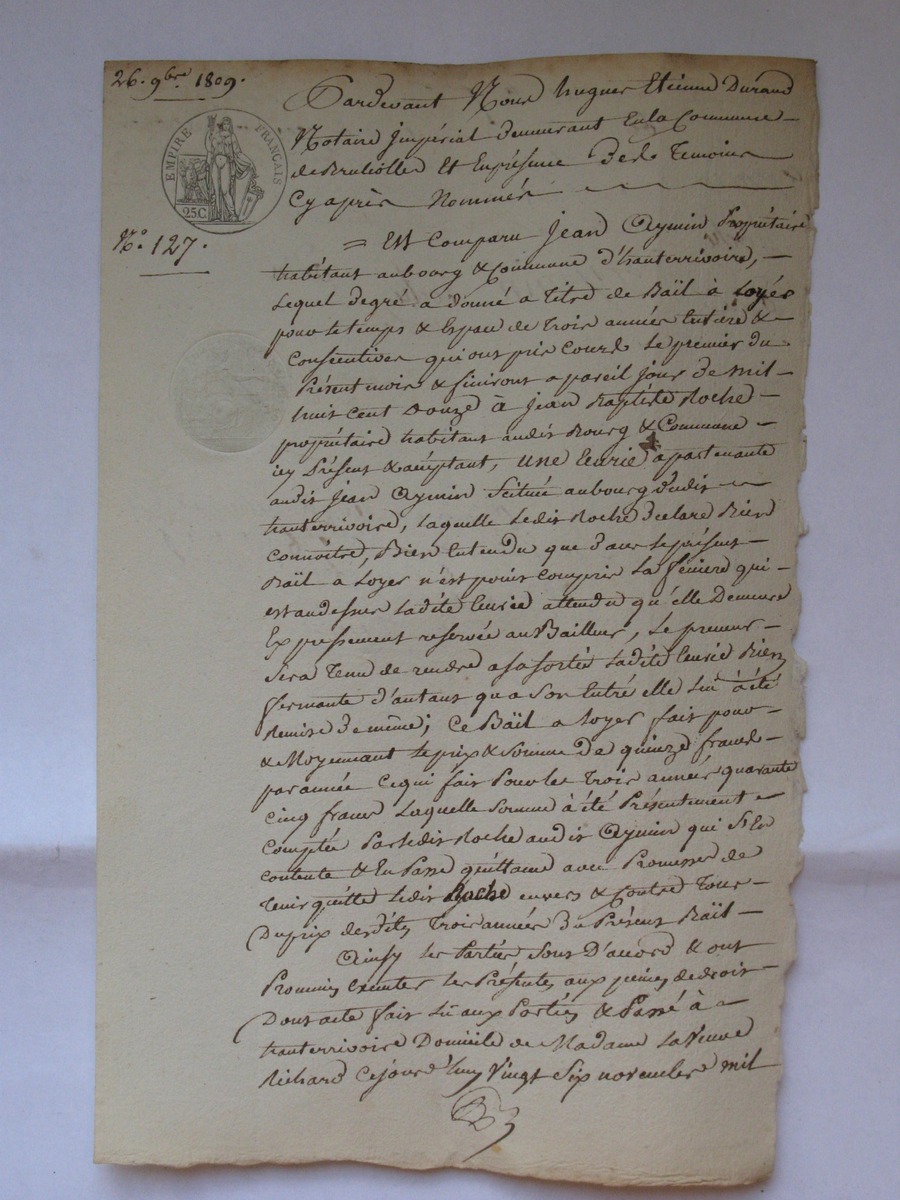 26. 9bre. 1809.
EMPIRE FRANÇAIS
25C.
N.o 127.
Pardevant Nous hugues Etienne Durand
Notaire Impérial demeurant En la Commune
de Brullioles Et En présence De de Temoins
Cy après Nommés
= Est Comparu Jean Aymin Propriétaire
habitant au bourg & Commune d'hauterrivoire,
Lequel degré a donné a Titre de Baïl à Loyer
pour le temps & Espace de Trois années Entière &
Consécutives qui ont pris Cours Le premier du
Présent mois & finiront a pareil jour de mil
huit Cent Douze à Jean Baptiste Roche
propriétaire habitant audit Bourg & Commune
icy Présent & acceptant, une Ecurie apartenante
audit Jean Aymin Scituée au bourg dudit
hauterrivoire, Laquelle Ledit Roche declare Bien
Connoître, Bien Entendu que Dans le présent
Baïl a Loyer n'est point Compris La féniere qui
est au dessus Ladite Ecurie attendu qu'elle Demeure
Expressement reservée au Bailleur, Le preneur
Sera Tenu de rendre a sa Sortie Ladite Ecurie Bien
fermante d'autant qu'a Son Entré elle Lui à été
Remise De même; Ce Baïl a Loyer fait pour
& Moyennant Le prix & Somme De quinze francs
par année Ce qui fait Pour les Trois année quarante
Cinq francs Laquelle Somme à été Présentement
Comptée Par Ledit Roche audit Aymin qui S'En
contente & En Passe quittance avec Promesse de
Tenir quitte Ledit Roche envers & Contre Tous
Du prix desdites Trois années Du Présent Baïl
Ainsy les Parties Sont D'accord & ont
Promis Executer les Présentes aux peines de droit
Dont acte fait Lû aux Parties & Passé à
hauterrivoire Domicile de Madame La Veuve
Richard Cejourd'huy Vingt Six novembre mil